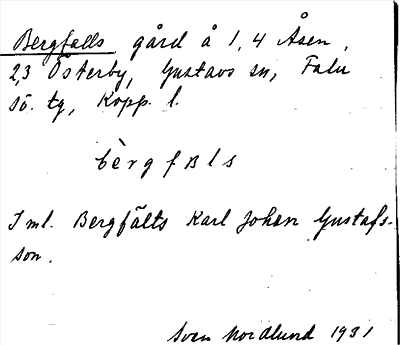 Bergfalls gård å 1,4 Åsen,
2,3 Österby, Gustavs sn, Falu
sö. tg, Kopp. l.
bèrgfals
I ml. Bergfälts Karl Johan Gustafs-
son.
Sven Nordlund 1931